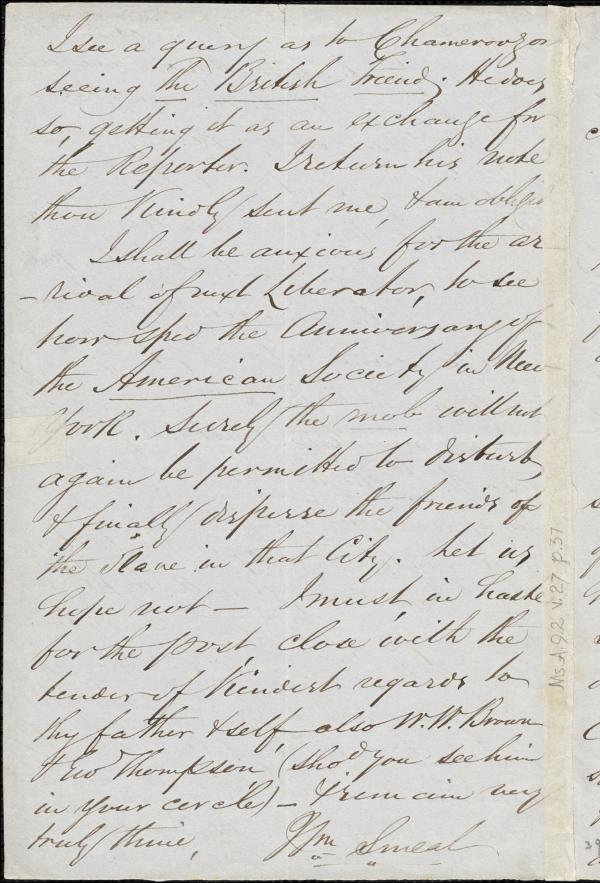 I see a query as to Chamerovzon
seeing the British Friend; He does
so, getting it as an exchange for
the Reporter. I return his note
thou kindly sent me, & am obliged
I shall be anxious for the ar
-rival of next Liberator, to see
how sped the Anniversary of
the American Society in New
York. Surely the mob will not
again be permitted to disturb,
& finally disperse the friends of
the Slave in that City. Let us
hope not — I must, in haste
for the post, close with the
tender of kindest regards to
thy father & self, also W. W. Brown
& Geo Thompson, (shod you see him
in your circle) — & remain very
truly thine, Wm Smeal
Ms.A.9.2 v.27 p.37